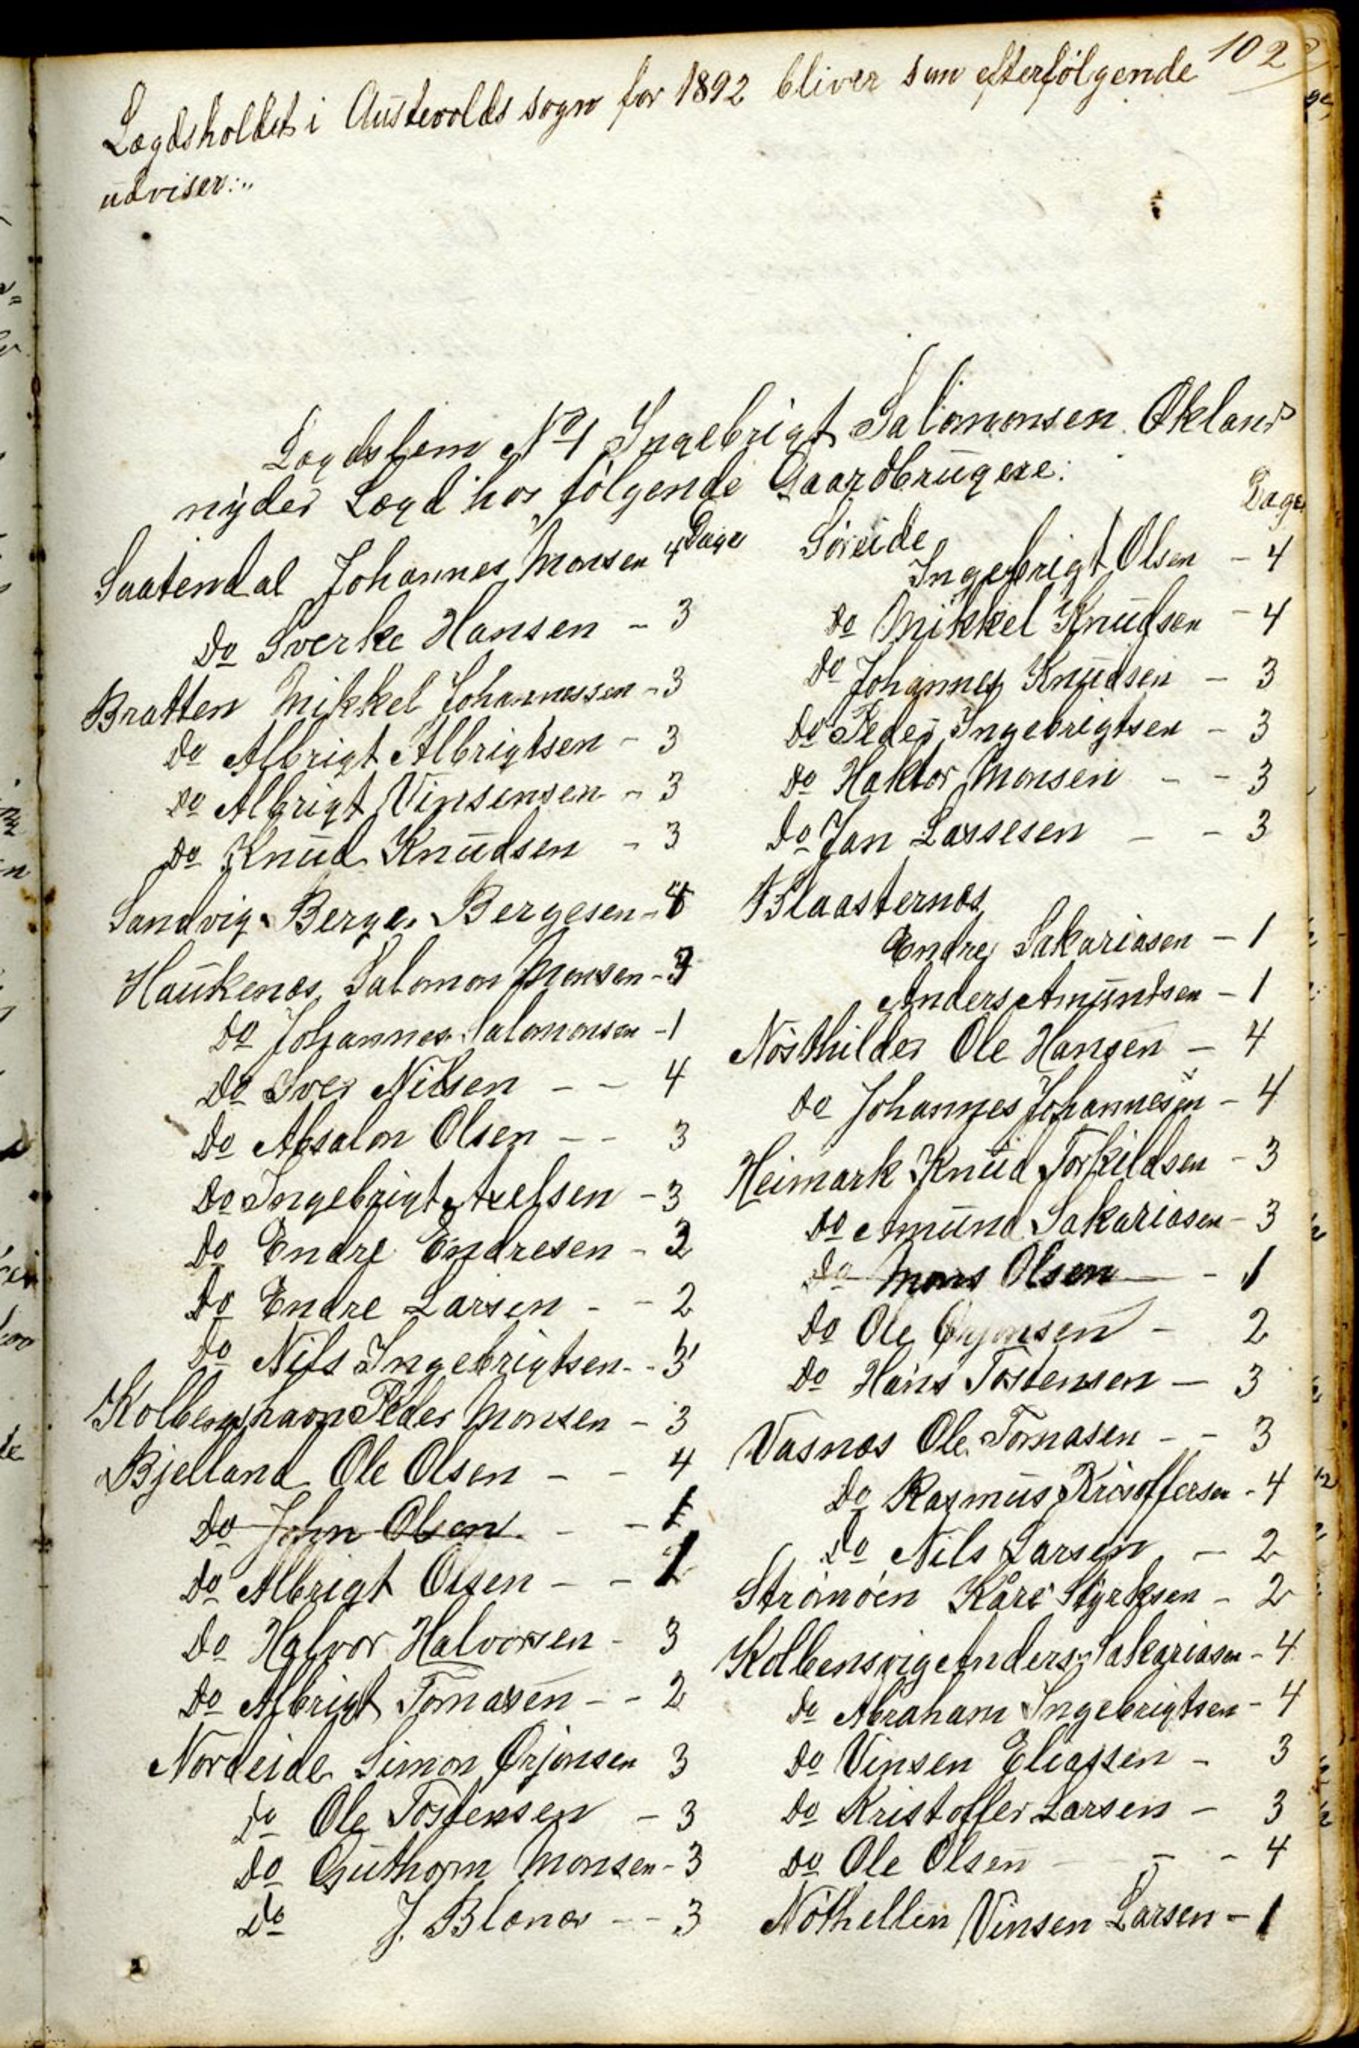 102
Lægdsholdet i Austevolds sogn for 1892 bliver sun efterfølgende
udviser:"
Lægdslem No 1 Ingebrigt Salomonsen Økland
nyder Lægd hos følgende Gaardbrugere:
Dage
Saatendal Johannes Monsen 4
Do Sverke Hansen - 3
Bratten Mikkel Johannessen - 3
Do Albrigt Albrigtsen - 3
Do Albrigt Vinsensen - 3
Do Knud Knudsen - 3
Sandvig Berge Bergesen - 4
Haukenæs Salomon Monsen - 3
Do Johannes Salomonsen - 1
Do Iver Nilsen - - 4
Do Absalon Olsen - - 3
Do Ingebrigt Axelsen - 3
Do Endre Endresen - 3
Do Endre Larsen - - 2
Do Nils Ingebrigtsen - - 3
Kolbenshavn Peder Monsen - 3
Bjelland Ole Olsen - - 4
Do John Olsen - - 1
Do Albrigt Olsen - - 1
Do Halvor Halvorsen - 3
Do Albrigt Tomasen - - 2
Nordeide Simon Ørjansen 3
Do Ole Tostensen - 3
Do Guthorm Monsen - 3
Do J. Blænæs - - 3
Dage
Søreide
Ingebrigt Olsen - 4
Do Mikkel Knudsen - 4
Do Johannes Knudsen - 3
Do Peder Ingebrigtsen - 3
Do Haktor Monsen - - 3
Do Jan Lassesen - - 3
Blaasternæs
Endre Sakariasen - 1
Anders Amundsen - 1
Nøsthilder Ole Hansen - 4
Do Johannes Johannesen - 4
Heimark Knud Torkildsen - 3
Do Amund Sakariasen - 3
Do Mons Olsen - - 1
Do Ole Ørjansen - 2
Do Hans Tostensen - 3
Vasnæs Ole Tomasen - - 3
Do Rasmus Kristoffersen - 4
Do Nils Larsen - 2
Strømøen Kåre Styrksen - 2
Kolbensvig Anders Sakariasen - 4
Do Abraham Ingebrigtsen - 4
Do Vinsen Eliassen - 3
Do Kristoffer Larsen - 3
Do Ole Olsen - - - 4
Nøthellen Vinsen Larsen - 1